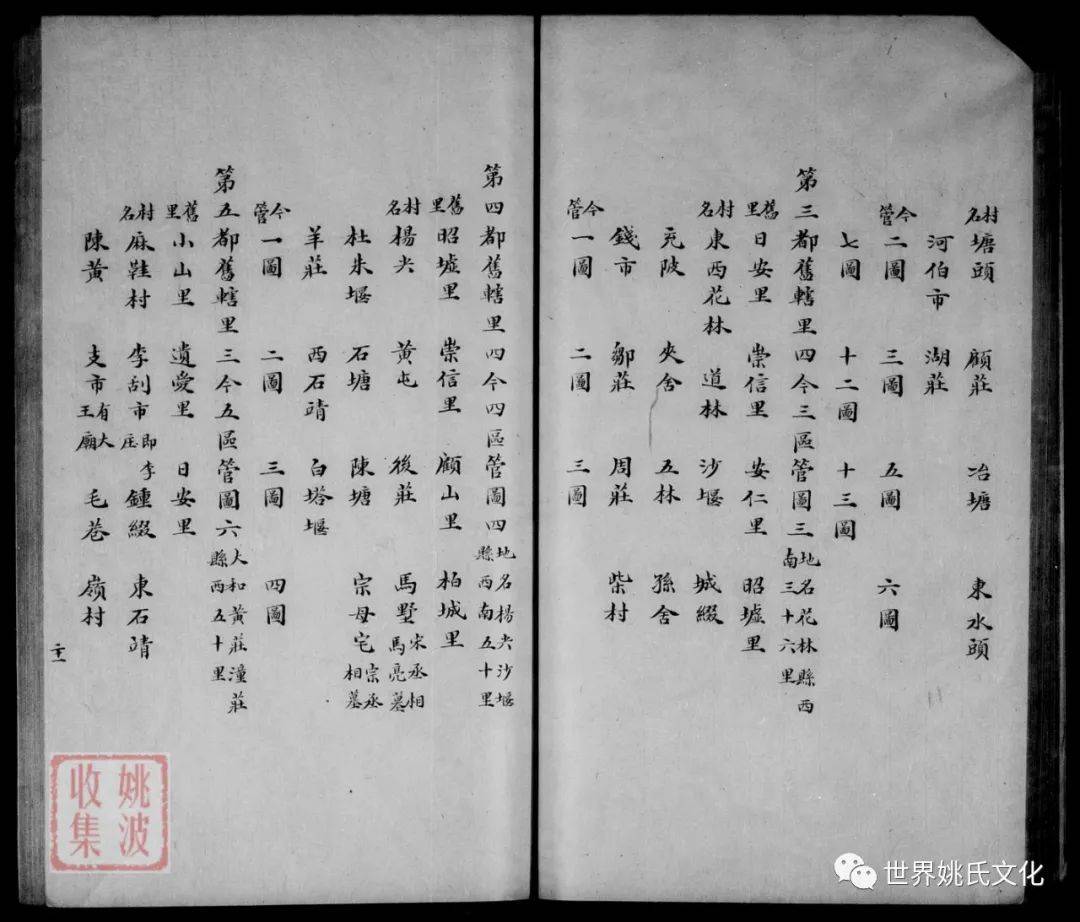 村名塘頭 顧莊 冶塘 東水頭
河伯市 湖莊
今管二圖 三圖 五圖 六圖
七圖 十二圖 十三圖
第三都舊轄里四今三區管圖三地名花林縣西南三十六里
舊里日安里 崇信里 安仁里 昭墟里
村名東西花林 道林 沙堰 城綴
兖陂 夾舍 五林 孫舍
錢市 鄒莊 周莊 柴村
今管一圖 二圖 三圖
第四都舊轄里四今四區管圖四地名楊夾沙堰縣西南五十里
舊里昭墟里 崇信里 顧山里 柏城里
村名楊夾 黃屯 後莊 馬墅宋丞相馬亮墓
杜朱堰 石塘 陳塘 宗母宅宗丞相墓
羊莊 西石靖 白塔堰
今管一圖 二圖 三圖 四圖
第五都舊轄里三今五區管圖六大和黃莊潼莊縣西五十里
舊里小山里 遺愛里 日安里
村名麻鞋村 李刮市即李庄 鍾綴 東石靖
陳黃 支市有大王廟 毛巷 嶺村
二十一
姚波收集
世界姚氏文化